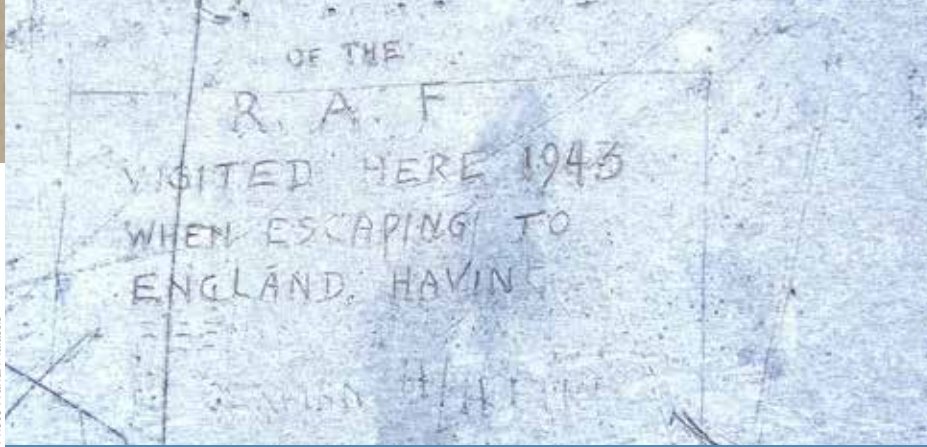 OF THE
R. A. F
VISITED HERE 1943
WHEN ESCAPING TO
ENGLAND. HAVING